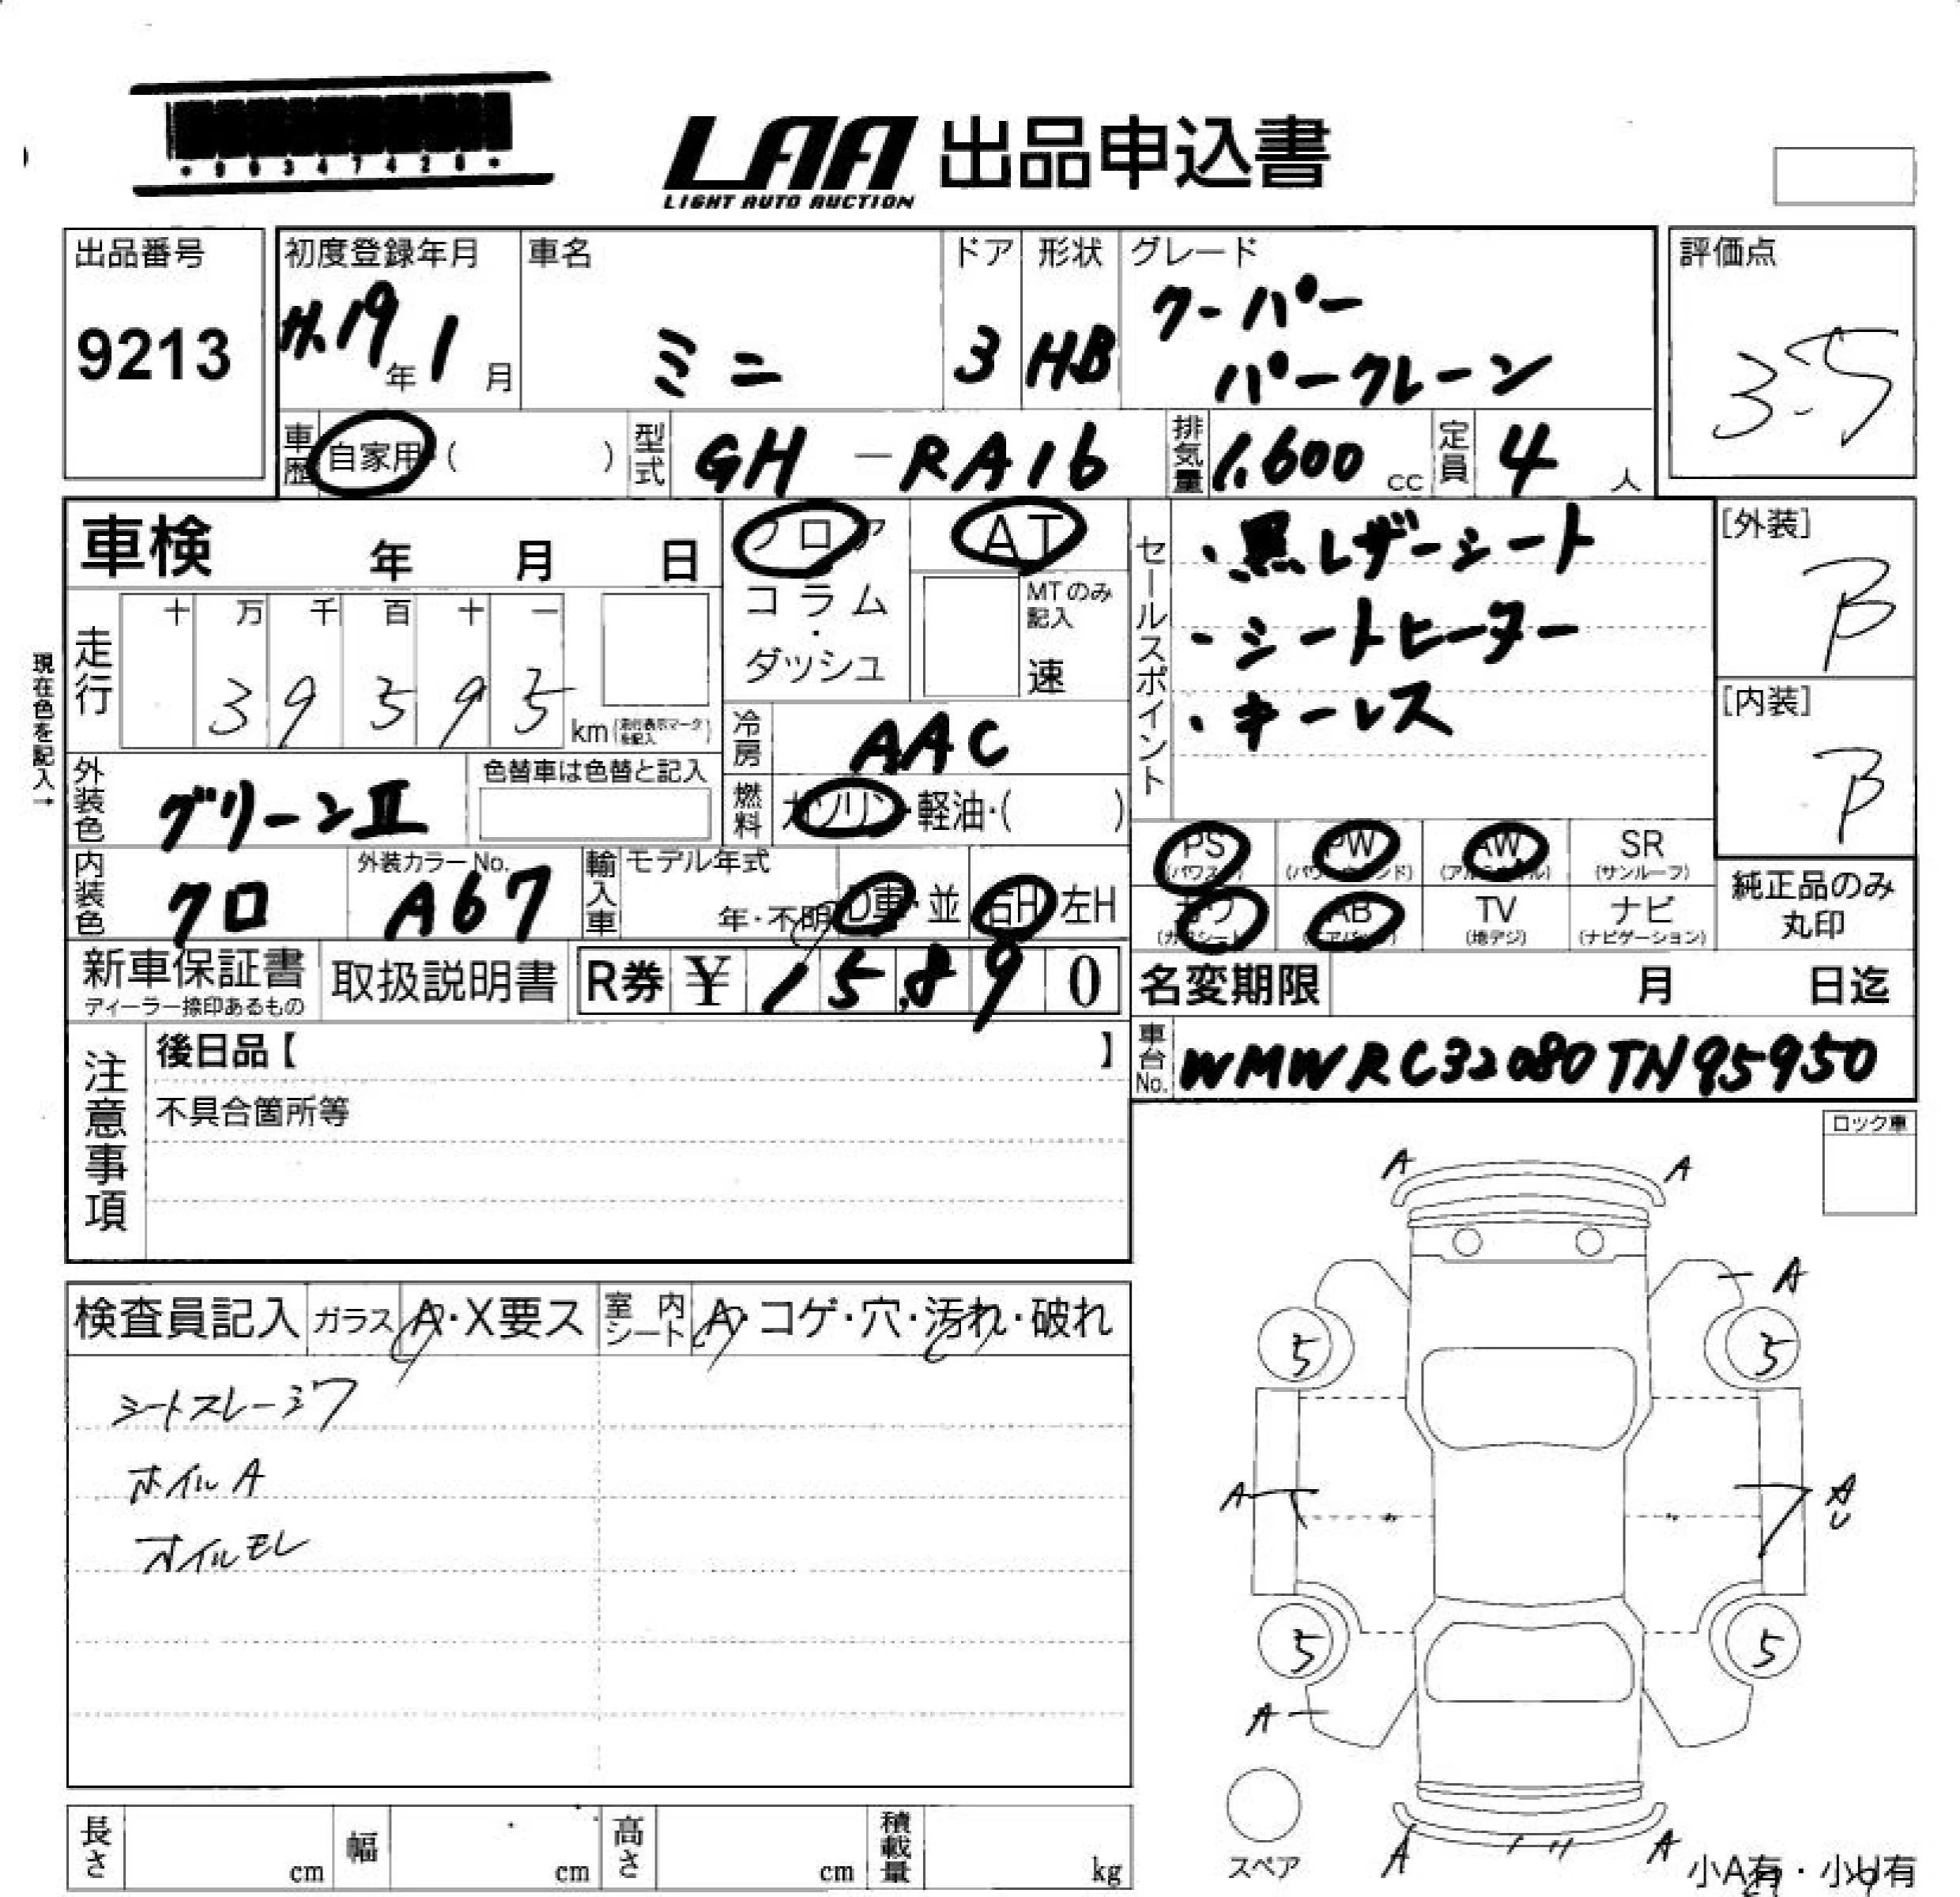 *90347420*
LAA 出品申込書
LIGHT AUTO AUCTION
出品番号
9213
初度登録年月
H.19年1月
車名
ミニ
ドア
3
形状
HB
グレード
クーパー
パークレーン
評価点
3.5
車歴
自家用・( )
型式
GH-RA16
排気量
1,600cc
定員
4人
車検 年 月 日
フロア
コラム
・
ダッシュ
AT
MTのみ
記入
速
セールスポイント
・黒レザーシート
・シートヒーター
・キーレス
[外装]
B
[内装]
B
現在色を記入→
走行
十 万 千 百 十 一
3 9 5 9 5
km(走行表示マークを記入)
冷房
AAC
外装色
グリーンII
色替車は色替と記入
燃料
ガソリン・軽油・( )
PS
(パワステ)
PW
(パワーウィンド)
AW
(アルミホイル)
SR
(サンルーフ)
内装色
クロ
外装カラーNo.
A67
輸入車
モデル年式
年・不明
D車・並
右H 左H
カワ
(カワシート)
AB
(エアバック)
TV
(地デジ)
ナビ
(ナビゲーション)
純正品のみ
丸印
新車保証書
ディーラー捺印あるもの
取扱説明書
R券 ¥ 15,890
名変期限 月 日迄
車台No.
WMWRC32080TN95950
注意事項
後日品【 】
不具合箇所等
ロック車
検査員記入
ガラス
A・X要ス
室内シート
A・コゲ・穴・汚れ・破れ
シートスレ・シワ
ホイルA
オイルモレ
A A
A
5 5
A A
U
5 5
A
A A
スペア
小A有・小U有
長さ cm
幅 cm
高さ cm
積載量 kg